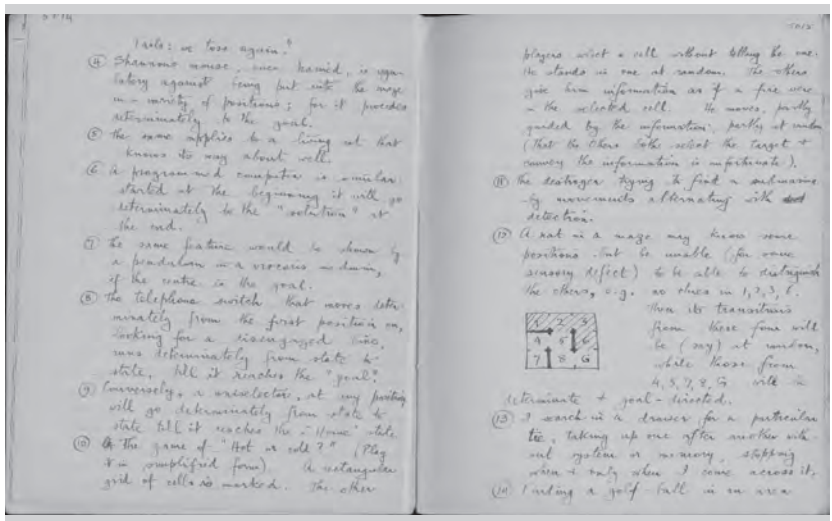 5014
Tails: we toss again."
④ Shannon's mouse, once trained, is regu-
latory against being put into the maze
in a variety of positions; for it proceeds
determinately to the goal.
⑤ The same applies to a living rat that
knows its way about well.
⑥ A programmed computer is similar:
started at the beginning it will go
determinately to the "solution" at
the end.
⑦ The same feature would be shown by
a pendulum in a viscous medium,
if the centre is the goal.
⑧ The telephone switch that moves deter-
minately from the first position on,
looking for a disengaged line,
runs determinately from state to
state, till it reaches the "goal".
⑨ Conversely, a uniselector, at any position
will go determinately from state to
state till it reaches the "Home" state
⑩ The game of "Hot or cold?" (Play
it in simplified form). A rectangular
grid of cells is marked. The other
5015
players select a cell without telling the one.
He stands in one at random. The others
give him information as if a fire were
in the selected cell. He moves, partly
guided by the information, partly at random
(That the others both select the target &
convey the information is unfortunate).
⑪ The destroyer trying to find a submarine
by movements alternating with
detection.
⑫ A rat in a maze may know some
positions but be unable (for some
sensory defect) to be able to distinguish
the others, e.g. no clues in 1,2,3,6.
Then its transitions
from these four will
be (say) at random,
while those from
4, 5, 7, 8, G will be
determinate & goal-directed.
1 2 3
4 5 6
7 8 G
⑬ I search in a drawer for a particular
tie, taking up one after another with-
out system or memory, stopping
when & only when I come across it.
⑭ Finding a golf-ball in an area